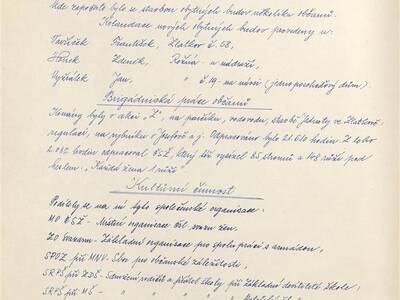 Dále započato bylo se stavbou obytných budov několika občanů.
Kolaudace nových obytných budov provedeny u:
Vavříček František, Zlatkov č. 58,
Horek Zdeněk, Rožná - u nádraží,
Vyžrálek Jan, " č. 19 - na návsi (jednoposchoďový dům).
Brigádnická práce občanů
Konány byly v akci „Z" - na parčíku, vodovodu, stavbě Jednoty ve Zlatkově
regulaci, na rybníku v Josefově a j. Odpracováno bylo 21.610 hodin. Z toho
2.092 hodin odpracoval ČSŽ, který též vysázel 25 stromů a 148 růží pod
heslem: „Každá žena 1 růži".
Kulturní činnost
Podílely se na ní tyto společenské organisace:
MO ČSŽ - Místní organisace Čsl. svazu žen,
ZO Svazarm - Základní organisace pro spolupráci s armádou,
SPOZ při MNV - Sbor pro občanské záležitosti,
SRPŠ při ZDŠ - Sdružení rodičů a přátel školy při Základní devítileté škole,
SRPŠ při MŠ - " " " " " Mateřské škole